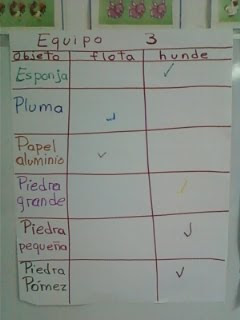 Equipo 3
Objeto flota hunde
Esponja ✓
Pluma ✓
Papel
aluminio ✓
Piedra
grande ✓
Piedra
pequeña ✓
Piedra
Pómez ✓